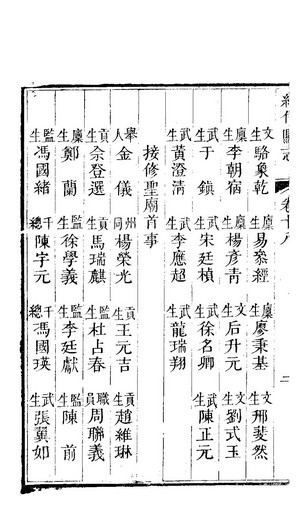 卷十八
二
文生駱奠乾 廩生易叅經 廩生廖秉基 文生邢斐然
廩生李朝宿 廩生楊彥青 文生后升元 文生劉式玉
武生于鎮 武生宋廷楨 武生徐名卿 武生陳正元
武生黃澄清 武生李應超 武生龍瑞翔
接修聖廟首事
舉人金儀 州同楊榮光 貢生王元吉 貢生趙維琳
貢生佘登選 貢生馬瑞麒 監生杜占春 職員周聯義
廩生鄭蘭 監生徐學義 監生李廷獻 監生陳前
監生馮國緒 千總陳字元 千總馮國瑛 武生張翼如